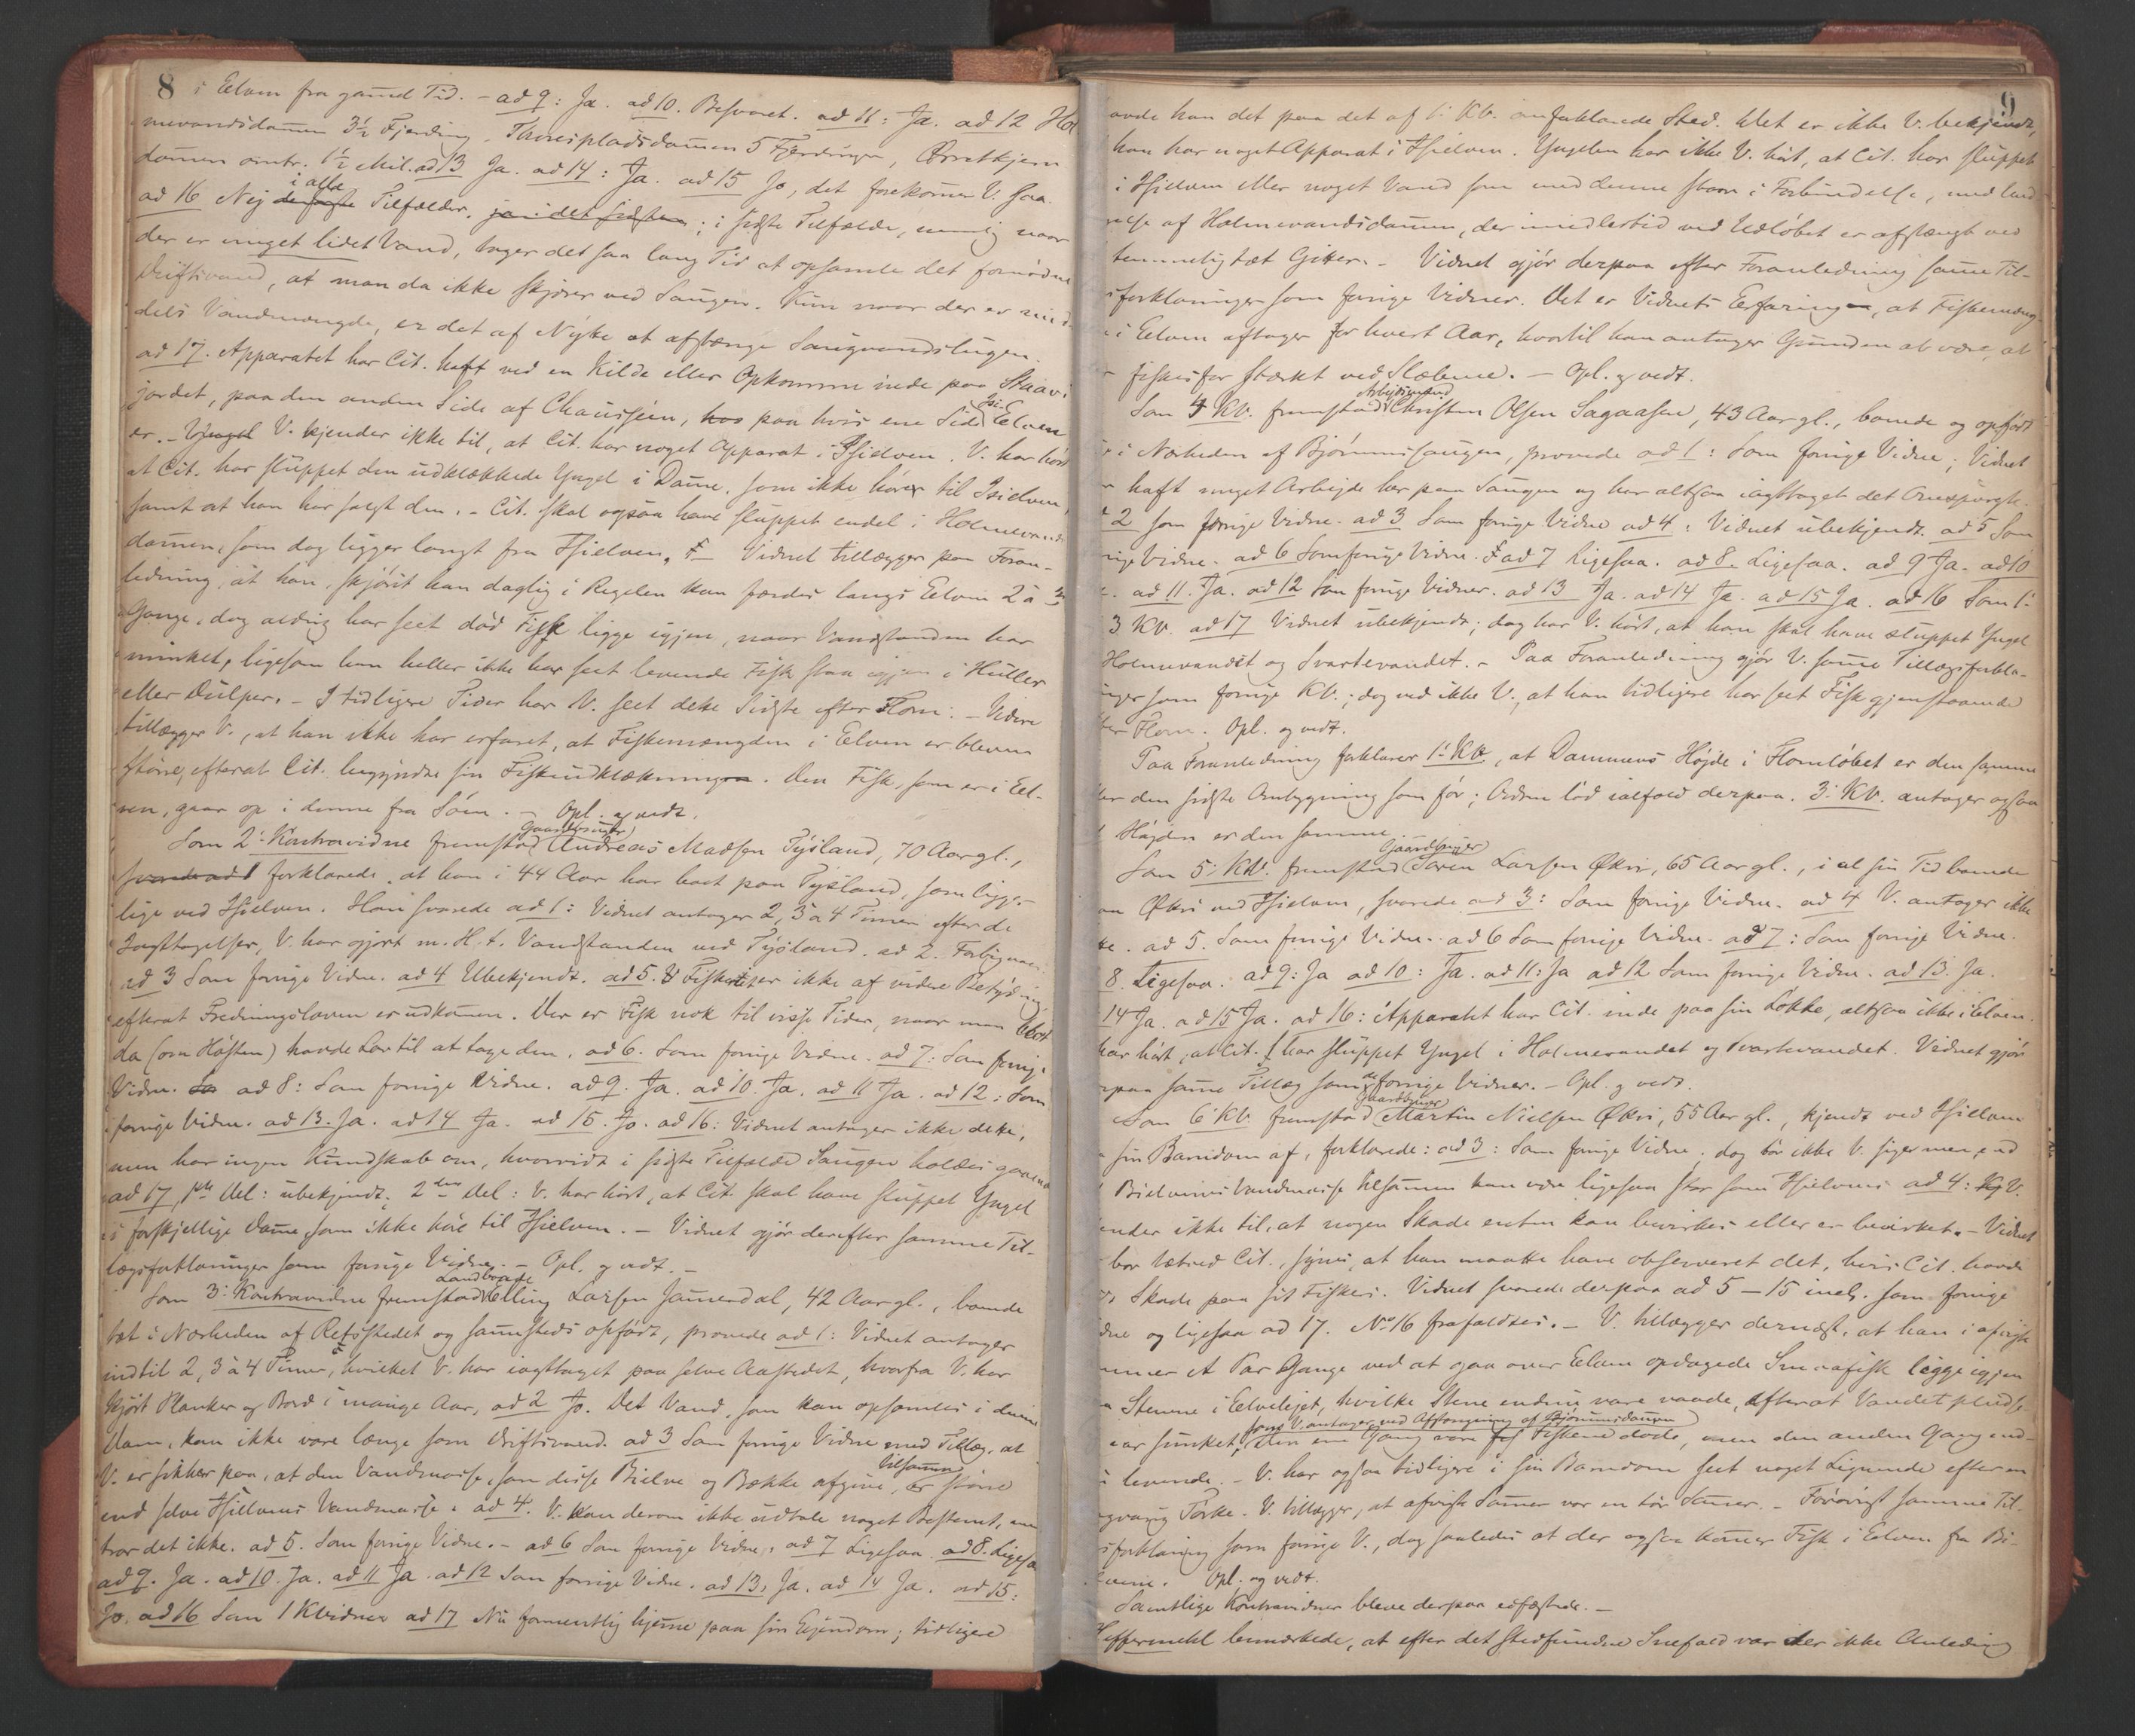 8
i Elven fra gamel Tid. - ad 9: Ja. ad 10. Besvaret. ad 11: Ja. ad 12 Hol-
mevandsdamen 3½ Fjerding, Thorespladsdamen 5 Fjerdinger, Ørretkjern
damen omtr. 1½ Mil. ad 13 Ja. ad 14: Ja. ad 15 Jo, det forekomer V. saa.
ad 16 Nej i alle Tilfælder, i sidste Tilfælde, nemlig naar
der er meget lidet Vand, tager det saa lang Tid at opsamle det fornødne
Driftsvand, at man da ikke skjærer ved Saugen. Kun naar der er mid-
dels Vandmængde, er det af Nytte at afstænge Saugvandslugen.
ad 17. Apparatet har Cit. haft ved en Kilde eller Opkomme inde paa Staavi
jordet, paa den anden Side af Chausséen, paa hvis ene Side Elven
er. - V. kjender ikke til, at Cit. har noget Apparat i Hjelven. V. har hørt
at Cit. har sluppet den udklækkede Yngel i Dame, som ikke hører til Hjelven,
samt at han har solgt den. - Cit. skal ogsaa have sluppet endel i Holmevands
damen, som dog ligger langt fra Hjelven. - Vidnet tillægger paa Foran-
ledning, at han, skjønt han daglig i Regelen kan færdes langs Elven 2 à 3
Gange, dog aldrig har seet død Fisk ligge igjen, naar Vandstanden har
minket, ligesom han heller ikke har seet levende Fisk staa igjen i Huller
eller Dulper. - I tidligere Tider har V. seet dette Sidste efter Flom. - Videre
tillægger V., at han ikke har erfaret, at Fiskemængden i Elven er bleven
større, efterat Cit. begyndte sin Fiskeudklækning. Den Fisk, som er i El-
ven, gaar op i denne fra Søen. - Opl. og vedt.
Som 2. Kontravidne fremstod Gaardbruger Andreas Madsen Tysland, 70 Aar gl.,
forklarede, at han i 44 Aar har boet paa Tysland, som ligger
lige ved Hjelven. Han svarede ad 1: Vidnet antager 2, 3 à 4 Timer efter de
Iagttagelser, V. har gjort m. H. t. Vandstanden ved Tysland. ad 2. Forbigaaes.
ad 3 Som forrige Vidne. ad 4 Ubekjendt. ad 5. Fiskeriet er ikke af videre Betydning
efterat Fredningsloven er udkommen. Der er Fisk nok til visse Tider, naar man blot
da (om Høsten) havde Lov til at tage den. ad 6. Som forrige Vidne. ad 7: Som forrige
Vidne. ad 8: Som forrige Vidne. ad 9. Ja. ad 10. Ja. ad 11 Ja. ad 12: Som
forrige Vidne. ad 13. Ja. ad 14 Ja. ad 15. Jo. ad 16: Vidnet antager ikke dette,
men har ingen Kundskab om, hvorvidt i sidste Tilfælde Saugen holdes gaaende
ad 17, 1ste Del: ubekjendt; 2den Del: V. har hørt, at Cit. skal have sluppet Yngel
i forskjellige Dame, som ikke høre til Hjelven. - Vidnet gjør derefter samme Til-
lægsforklaringer som forrige Vidne. - Opl. og vedt. -
Som 3. Kontravidne fremstod Landbruger Elling Larsen Jamendal, 42 Aar gl., boende
tæt i Nærheden af Retsstedet og samesteds opfødt, provede ad 1: Vidnet antager
indtil 2, 3 à 4 Timer, hvilket V. har iagttaget paa selve Aastedet, hvorfra V. har
kjørt Planker og Bord i mange Aar, ad 2 Jo. Det Vand, som kan opsamles i denne
Dam, kan ikke vare længe som Driftsvand. ad 3 Som forrige Vidne med Tillæg, at
V. er sikker paa, at den Vandmasse, som disse Bielve og Bække afgive tilsamen, er større
end selve Hjelvens Vandmasse. ad 4. V. kan derom ikke udtale noget Bestemt, men
tror det ikke. ad 5. Som forrige Vidne. - ad 6 Som forrige Vidne. ad 7 Ligesaa. ad 8. Ligesaa
ad 9. Ja. ad 10. Ja. ad 11 Ja. ad 12 Som forrige Vidne. ad 13. Ja. ad 14 Ja. ad 15:
Jo. ad 16 Som 1 Kvidner ad 17 Nu formentlig hjeme paa sin Ejendom; tidligere
9
avde han det paa det af 1. Kv. forklarede Sted. Det er ikke V. bekjendt,
han har noget Apparat i Hjelven. Yngelen har ikke V. hørt, at Cit. har sluppet
i Hjelven eller noget Vand som med denne staar i Forbindelse, med Und
gelse af Holmevandsdamen, der imidlertid ved Udløbet er afstængt ved
temmelig tæt Gitter. - Vidnet gjør derpaa efter Foranledning same Til-
sforklaringer som forrige Vidner. Det er Vidnets Erfaring, at Fiskemæng-
i Elven aftager for hvert Aar, hvortil han antager Grunden at være, at
fiskes for stærkt ved Slæbene. - Opl. og vedt.
Som 4 Kv. fremstod Arbejdsmand Christen Olsen Sagaasen, 43 Aar gl., boende og opfødt
i Nærheden af Bjørnnsaugen, provede ad 1: Som forrige Vidne; Vidnet
haft meget Arbejde her paa Saugen og har altsaa iagttaget det Omspurgte.
2 som forrige Vidne. ad 3 Som forrige Vidne ad 4: Vidnet ubekjendt. ad 5 Som
rige Vidne. ad 6 Som forrige Vidne. ad 7 Ligesaa. ad 8. Ligesaa. ad 9 Ja. ad 10
ad 11. Ja. ad 12 Som forrige Vidner. ad 13 Ja. ad 14 Ja. ad 15 Ja. ad 16 Som 1.
3 Kv. ad 17 Vidnet ubekjendt; dog har V. hørt, at han skal have sluppet Yngel
Holmevandet og Svartevandet. - Paa Foranledning gjør V. same Tillægsforkla-
inger som forrige Kv.; dog ved ikke V., at han tidligere har seet Fisk gjenstaaende
ter Flom. Opl. og vedt.
Paa Foranledning forklarer 1. Kv., at Dammens Højde i Flomløbet er den samme
ter den sidste Ombygning som før; Orden lød ialfald derpaa. 3. Kv. antager ogsaa
Højden er den samme.
Som 5. Kv. fremstod Gaardbruger Søren Larsen Økri, 65 Aar gl., i al sin Tid boende
Økri ved Hjelven, svarede ad 3: Som forrige Vidne. ad 4 V. antager ikke
te. ad 5. Som forrige Vidne. ad 6 Som forrige Vidne. ad 7: Som forrige Vidne.
8. Ligesaa. ad 9: Ja ad 10: Ja. ad 11: Ja ad 12 Som forrige Vidne. ad 13. Ja.
14 Ja. ad 15 Ja. ad 16: Apparatet har Cit. inde paa sin Løkke, altsaa ikke i Elven.
har hørt, at Cit. har sluppet Yngel i Holmevandet og Svartevandet. Vidnet gjør
rpaa same Tillæg som de forrige Vidner. - Opl. og vedt.
Som 6 Kv. fremstod Gaardbruger Martin Nielsen Økri, 55 Aar gl., kjendt ved Hjelven
sin Barndom af, forklarede: ad 3: Som forrige Vidne, dog tør ikke V. sige mere, end
Bielvenes Vandmasse tilsamen kan være ligesaa stor som Hjelvens ad 4: V.
ender ikke til, at nogen Skade enten kan bevirkes eller er bevirket. - Vidnet
bor tæt ved Cit., synes, at han maatte have observeret det, hvis Cit. havde
Skade paa sit Fiskeri. Vidnet svarede derpaa ad 5 - 15 incl. som forrige
dne og ligesaa ad 17. No 16 frafaldtes. - V. tillægger dernæst, at han i afvigte
mmer et Par Gange ved at gaa over Elven opdagede Smaafisk ligge igjen
Stenene i Elvelejet, hvilke Stene endnu vare vaade, efterat Vandet pluds-
var sunket, som V. antager ved Afstængning af Bjørnnsdamen; den ene Gang vare Fiskene døde, men den anden Gang end-
levende. - V. har ogsaa tidligere i sin Barndom seet noget Lignende efter en
gvarig Tørke. V. tillægger, at afvigte Sommer var en tør Sommer. - Forøvrigt samme Til-
sforklaring som forrige V., dog saaledes at der ogsaa komer Fisk i Elven fra Bi-
lvene. Opl. og vedt.
Samtlige Kontravidner bleve derpaa edfæstede. -
Heffermehl bemærkede, at efter det stedfundne Snefald var der ikke Anledning